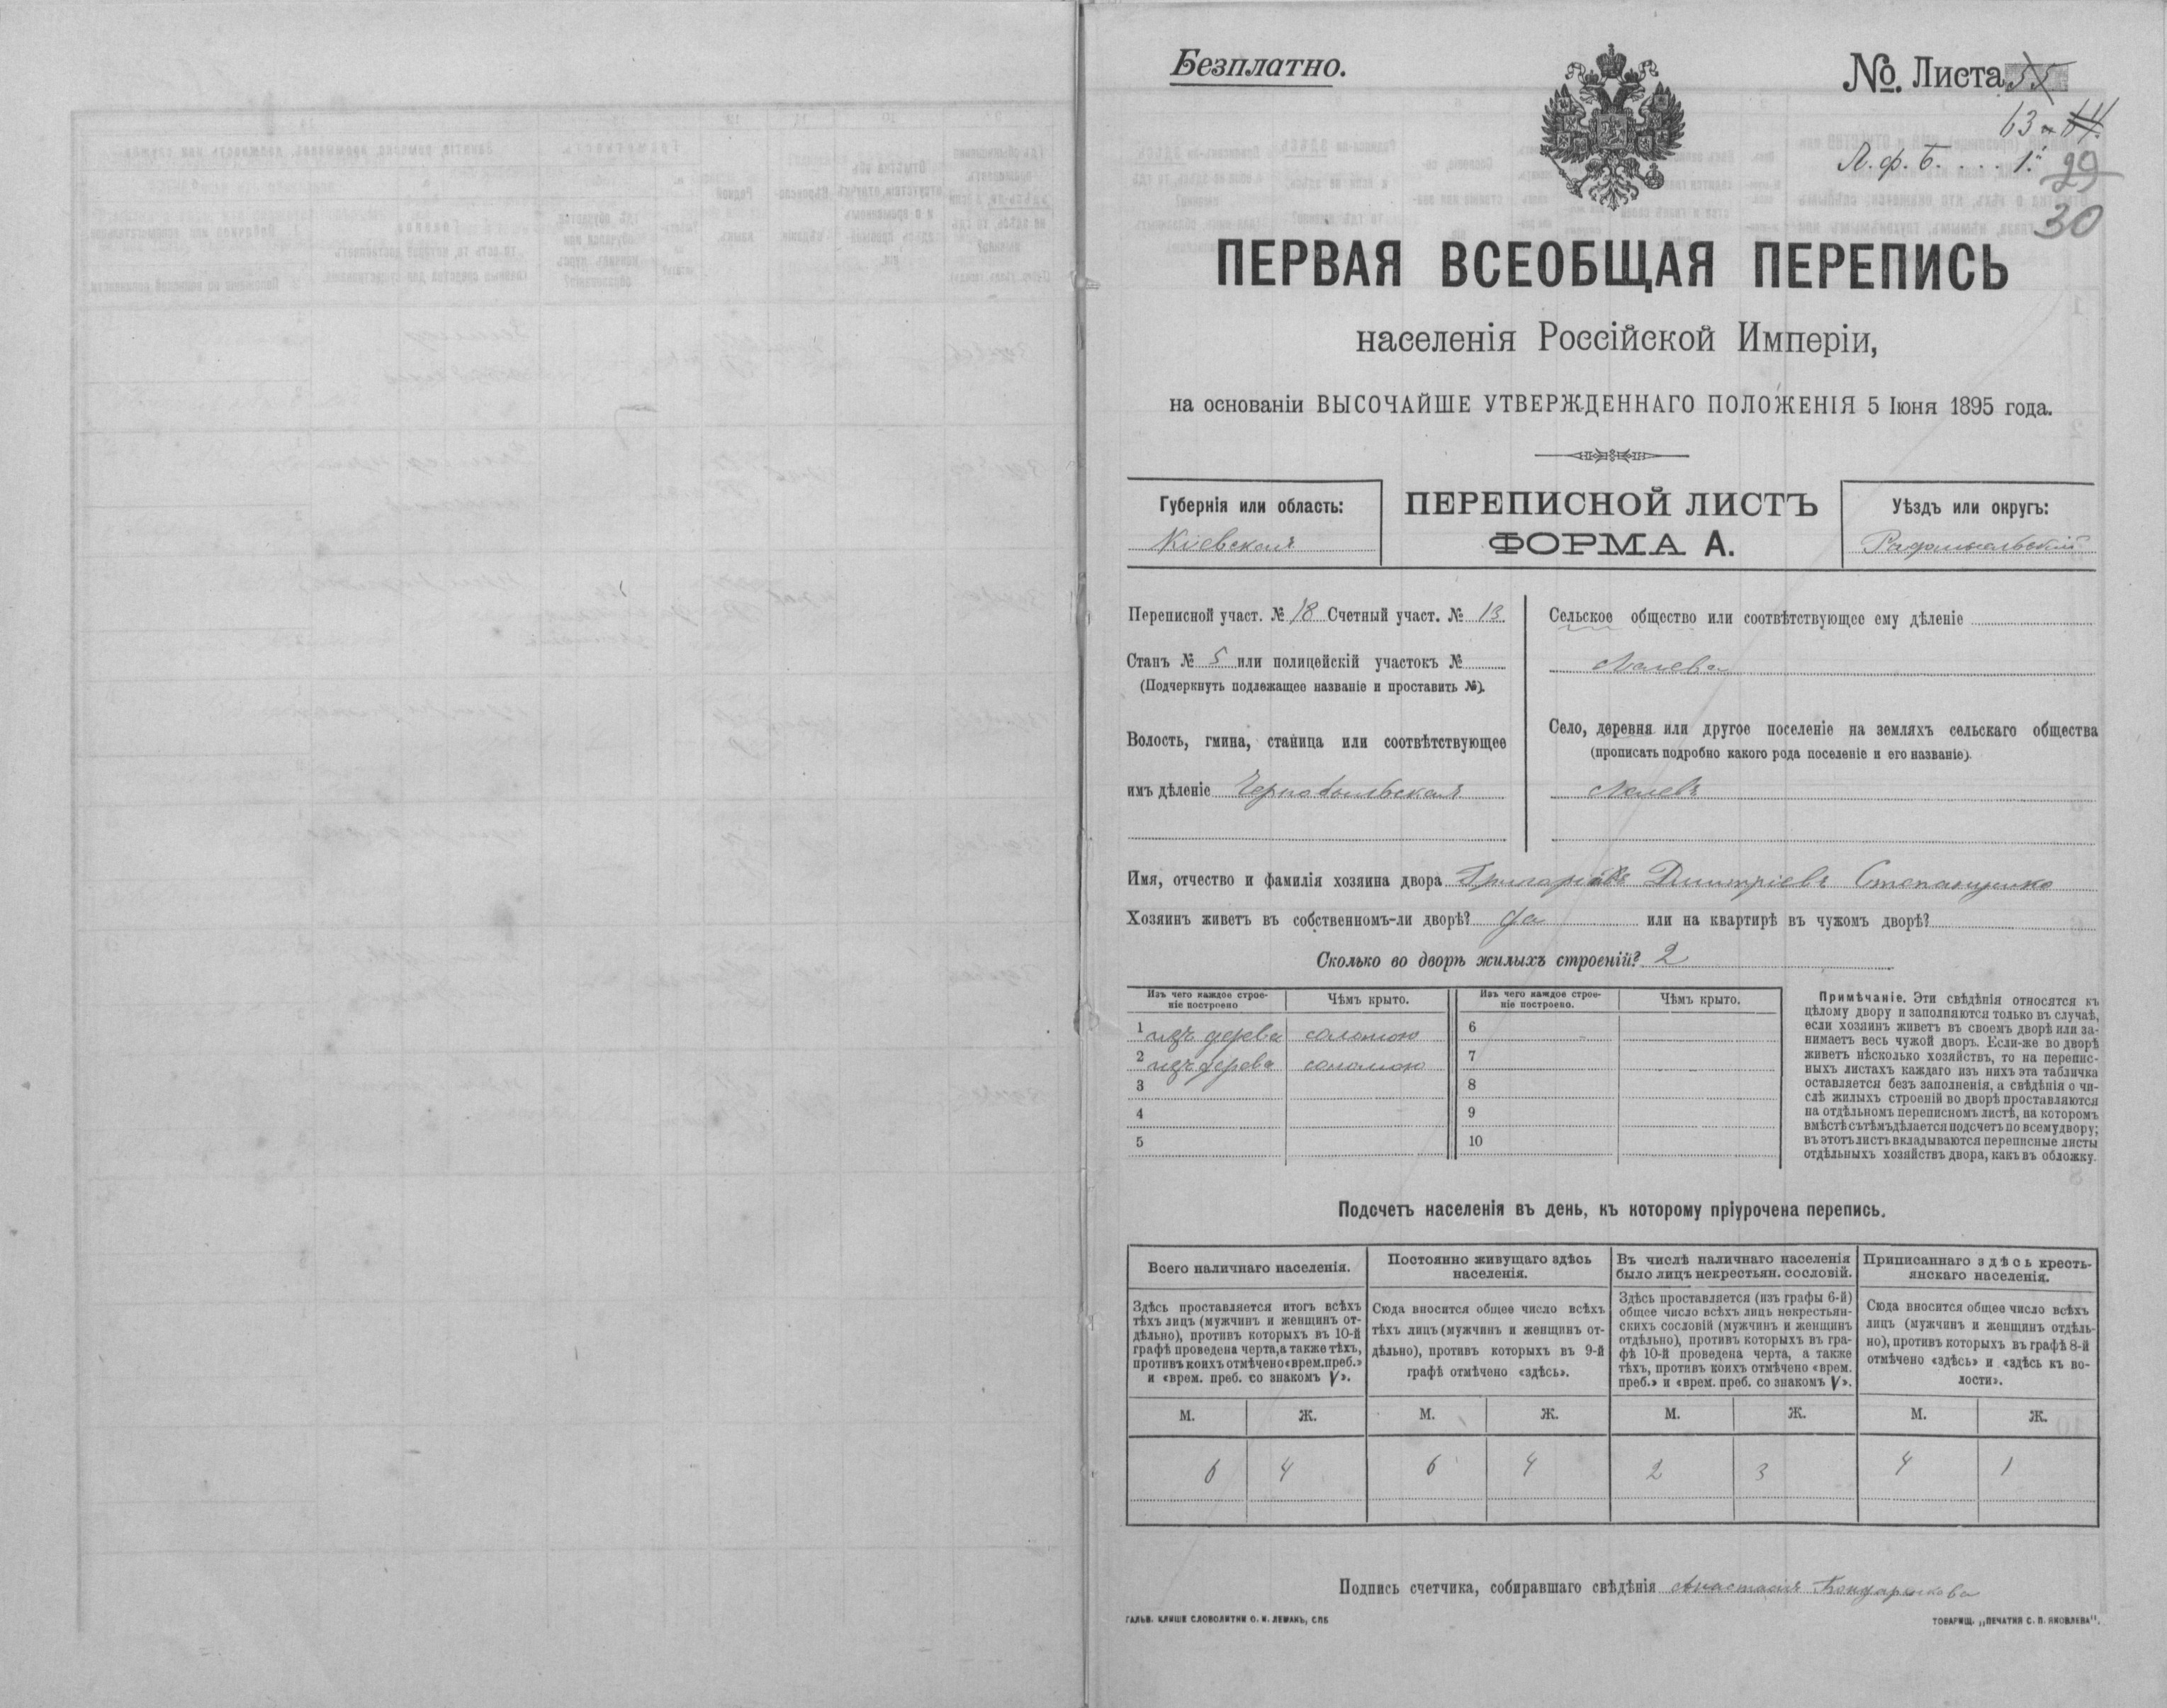 Безплатно.
№. Листа 55
63
А. ф. Б. . . . 1.
29
30
ПЕРВАЯ ВСЕОБЩАЯ ПЕРЕПИСЬ
населенія Россійской Имперіи,
на основаніи ВЫСОЧАЙШЕ УТВЕРЖДЕННАГО ПОЛОЖЕНІЯ 5 Іюня 1895 года.
Губернія или область:
Кіевская
ПЕРЕПИСНОЙ ЛИСТЪ
ФОРМА А.
Уѣздъ или округъ:
Радомысльскій
Переписной участ. № 18 Счетный участ. № 13
Станъ № 5 или полицейскій участокъ №
(Подчеркнуть подлежащее названіе и проставить №).
Волость, гмина, станица или соотвѣтствующее
имъ дѣленіе Чернобыльская
Сельское общество или соотвѣтствующее ему дѣленіе
Село, деревня или другое поселеніе на земляхъ сельскаго общества
(прописать подробно какого рода поселеніе и его названіе).
Имя, отчество и фамилія хозяина двора Дмитріевъ Степанценко
Хозяинъ живетъ въ собственномъ-ли дворѣ? да или на квартирѣ въ чужомъ дворѣ?
Сколько во дворѣ жилыхъ строеній? 2
Изъ чего каждое строе-
ніе построено
Чѣмъ крыто.
Изъ чего каждое строе-
ніе построено.
Чѣмъ крыто.
1 изъ дерева соломою 6
2 изъ дерева соломою 7
3 8
4 9
5 10
Примѣчаніе. Эти свѣдѣнія относятся къ
цѣлому двору и заполняются только въ случаѣ,
если хозяинъ живетъ въ своемъ дворѣ или за-
нимаетъ весь чужой дворъ. Если-же во дворѣ
живетъ нѣсколько хозяйствъ, то на перепис-
ныхъ листахъ каждаго изъ нихъ эта табличка
оставляется безъ заполненія, а свѣдѣнія о чи-
слѣ жилыхъ строеній во дворѣ проставляются
на отдѣльномъ переписномъ листѣ, на которомъ
вмѣстѣ съ тѣмъ дѣлается подсчетъ по всему двору;
въ этотъ листъ вкладываются переписные листы
отдѣльныхъ хозяйствъ двора, какъ въ обложку.
Подсчетъ населенія въ день, къ которому пріурочена перепись.
Всего наличнаго населенія.
Здѣсь проставляется итогъ всѣхъ
тѣхъ лицъ (мужчинъ и женщинъ от-
дѣльно), противъ которыхъ въ 10-й
графѣ проведена черта, а также тѣхъ,
противъ коихъ отмѣчено «врем. преб.»
и «врем. преб. со знакомъ V».
Постоянно живущаго здѣсь
населенія.
Сюда вносится общее число всѣхъ
тѣхъ лицъ (мужчинъ и женщинъ от-
дѣльно), противъ которыхъ въ 9-й
графѣ отмѣчено «здѣсь».
Въ числѣ наличнаго населенія
было лицъ некрестьян. сословій.
Здѣсь проставляется (изъ графы 6-й)
общее число всѣхъ лицъ некрестьян-
скихъ сословій (мужчинъ и женщинъ
отдѣльно), противъ которыхъ въ гра-
фѣ 10-й проведена черта, а также
тѣхъ, противъ коихъ отмѣчено «врем.
преб.» и «врем. преб. со знакомъ V».
Приписаннаго здѣсь кресть-
янскаго населенія.
Сюда вносится общее число всѣхъ
лицъ (мужчинъ и женщинъ отдѣль-
но), противъ которыхъ въ графѣ 8-й
отмѣчено «здѣсь» и «здѣсь къ во-
лости».
М. Ж. М. Ж. М. Ж. М. Ж.
6 4 6 4 2 3 4 1
Подпись счетчика, собиравшаго свѣдѣнія Анастасія
ГАЛЬВ. КЛИШЕ СЛОВОЛИТНИ О. И. ЛЕМАНЪ, СПБ
ТОВАРИЩ. „ПЕЧАТНЯ С. П. ЯКОВЛЕВА".